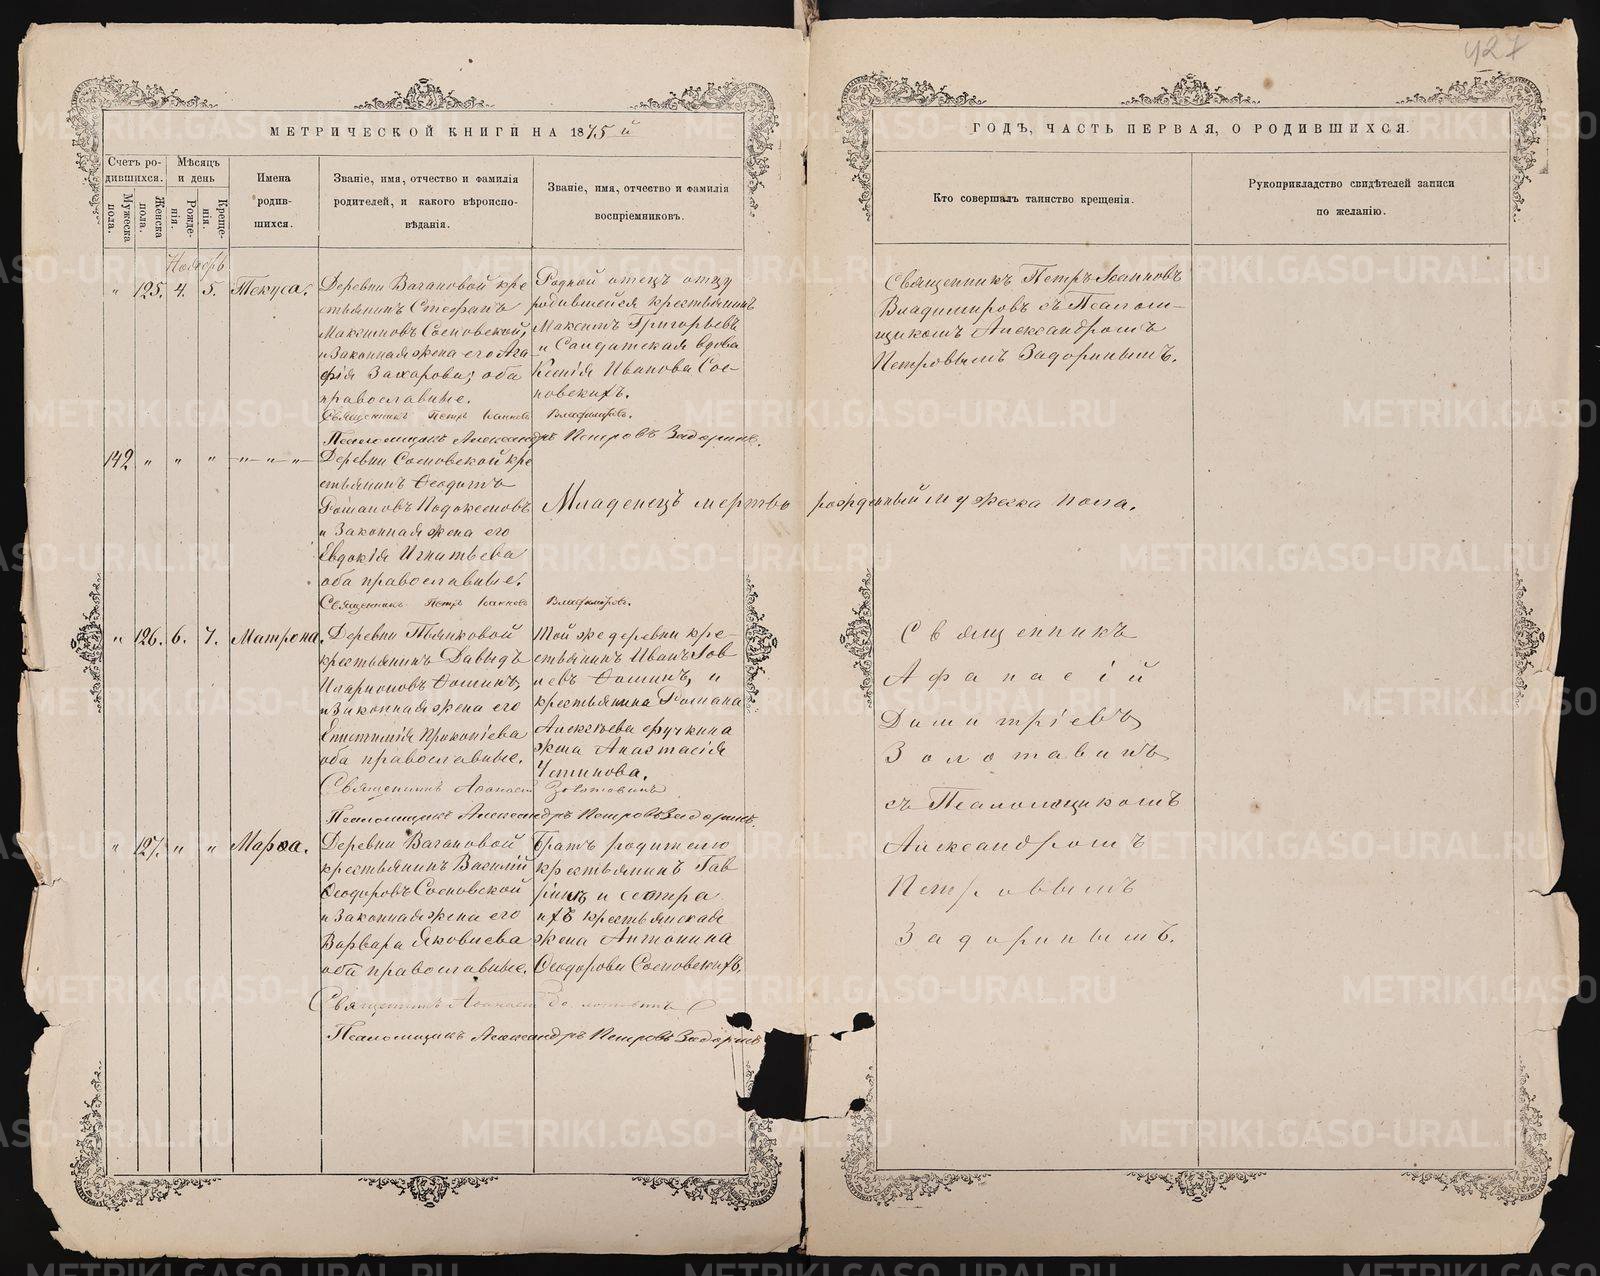 427
МЕТРИЧЕСКОЙ КНИГИ НА 1875 й
ГОДЪ, ЧАСТЬ ПЕРВАЯ, О РОДИВШИХСЯ.
Счетъ ро-
дившихся.
Мужеска
пола.
Женска
пола.
Мѣсяцъ
и день
Рожде-
нія.
Креще-
нія.
Имена
родив-
шихся.
Званіе, имя, отчество и фамилія
родителей, и какого вѣроиспо-
вѣданія.
Званіе, имя, отчество и фамилія
воспріемниковъ.
Кто совершалъ таинство крещенія.
Рукоприкладство свидѣтелей записи
по желанію.
Ноябрь
" 125. 4. 5. Текуса.
Деревни Вагановой кре
стьянинъ Стефанъ
Максимовъ Сосновской,
и Законная жена его Ага
фія Захарова; оба
православные.
Родной отецъ отцу
родившейся крестьянинъ
Максимъ Григорьевъ
и Солдатская вдова
Ксенія Иванова Сос-
новскихъ.
Священникъ Петръ Іоанновъ
Владимировъ съ Псалом-
щикомъ Александромъ
Петровымъ Задоринымъ.
Священникъ Петръ Іоанновъ Владимировъ.
Псаломщикъ Александръ Петровъ Задоринъ.
142 " " " " " "
Деревни Сосновской кре
стьянинъ Ѳеодотъ
Романовъ
и Законная жена его
Евдокія Игнатьева
оба православные.
Младенецъ мертво рожденный мужска пола.
Священникъ Петръ Іоанновъ Владимировъ.
" 126. 6. 7. Матрона.
Деревни
крестьянинъ Давыдъ
Иларионовъ Ѳоминъ,
и Законная жена его
Епистимія Прокопіева
оба православные.
Той же деревни кре-
стьянинъ Иванъ Іов
левъ Ѳоминъ, и
крестьянина Романа
Алексѣева
жена Анастасія
Устинова.
Священникъ
Афанасій
Димитріевъ
Золотавинъ
съ Псаломщикомъ
Александромъ
Петровымъ
Задоринымъ.
Священникъ Афанасій Золотавинъ
Псаломщикъ Александръ Петровъ Задоринъ.
" 127. " " Марѳа.
Деревни Вагановой
крестьянинъ Василій
Ѳеодоровъ Сосновской
и Законная жена его
Варвара Яковлева
оба православные.
Братъ родителю
крестьянинъ Гав
рилъ и сестра
ихъ крестьянская
жена Антонина
Ѳеодорова Сосновскихъ.
Священникъ Афанасій Золотавинъ
Псаломщикъ Александръ Петровъ Задоринъ
METRIKI.GASO-URAL.RU